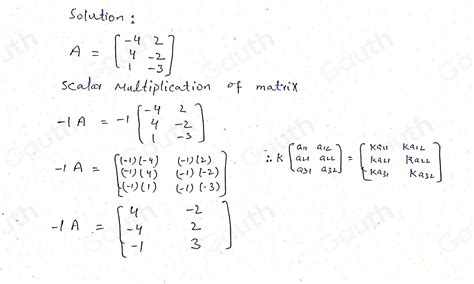 Solution :
A = [ -4 2
4 -2
1 -3 ]
Scalar Multiplication of matrix
-1 A = -1 [ -4 2
4 -2
1 -3 ]
-1 A = [ (-1)(-4) (-1)(2)
(-1)(4) (-1)(-2)
(-1)(1) (-1)(-3) ]
∴ K [ a11 a12
a21 a22
a31 a32 ] = [ Ka11 Ka12
Ka21 Ka22
Ka31 Ka32 ]
-1 A = [ 4 -2
-4 2
-1 3 ]
Gauth